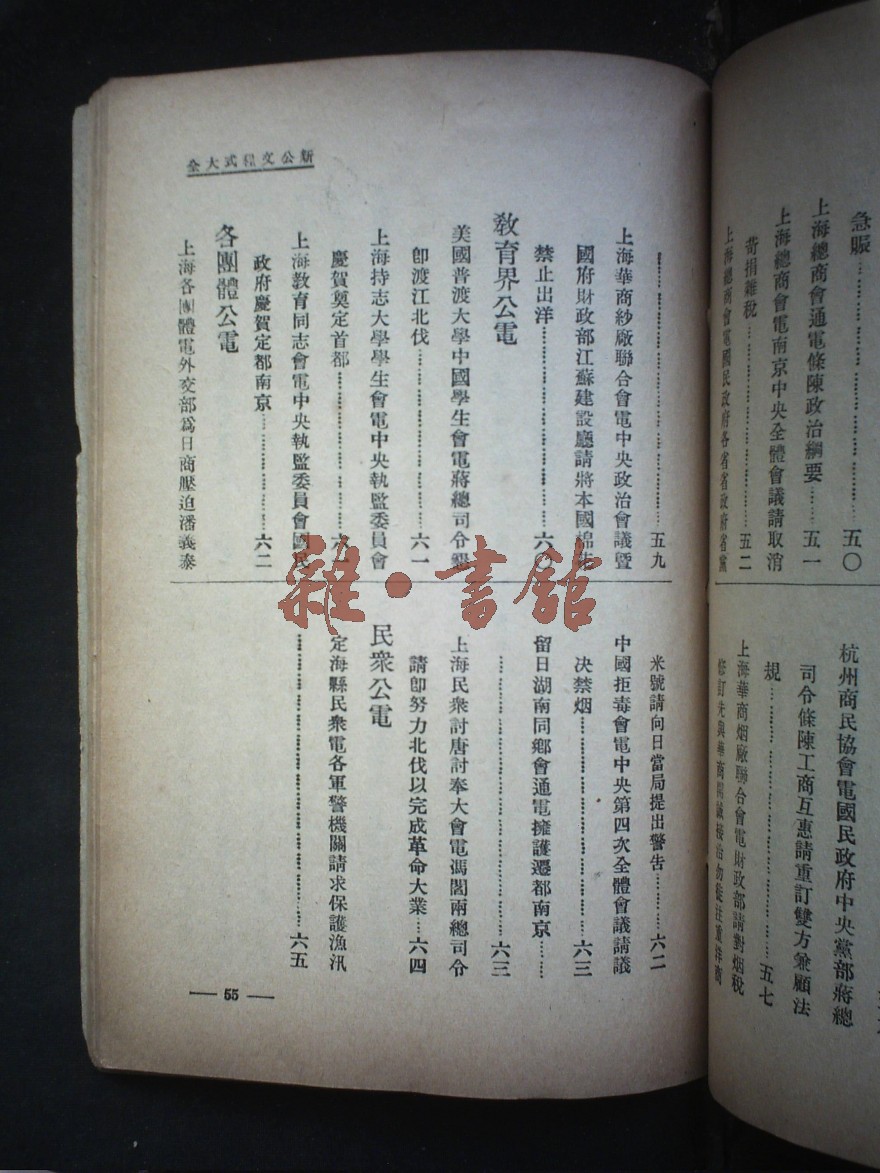 急賑……五〇
上海總商會通電條陳政治綱要……五一
上海總商會電南京中央全體會議請取消
苛捐雜稅……五二
上海總商會電國民政府各省省政府省黨
杭州商民協會電國民政府中央黨部蔣總
司令條陳工商互惠請重訂雙方兼顧法
規……五七
上海華商烟廠聯合會電財政部請對烟稅
修訂先與華商開誠接洽勿徒注重洋商
新公文程式大全
……五九
上海華商紗廠聯合會電中央政治會議暨
國府財政部江蘇建設廳請將本國綿花
禁止出洋……六〇
教育界公電
美國普渡大學中國學生會電蔣總司令懇
卽渡江北伐……六一
上海持志大學學生會電中央執監委員會
慶賀奠定首都……六一
上海教育同志會電中央執監委員會國民
政府慶賀定都南京……六二
各團體公電
上海各團體電外交部爲日商壓迫潘義泰
米號請向日當局提出警告……六二
中國拒毒會電中央第四次全體會議請議
決禁烟……六三
留日湖南同鄉會通電擁護遷都南京……
……六三
上海民衆討唐討奉大會電馮閻兩總司令
請卽努力北伐以完成革命大業…六四
民衆公電
定海縣民衆電各軍警機關請求保護漁汛
……六五
— 55 —
雜·書館